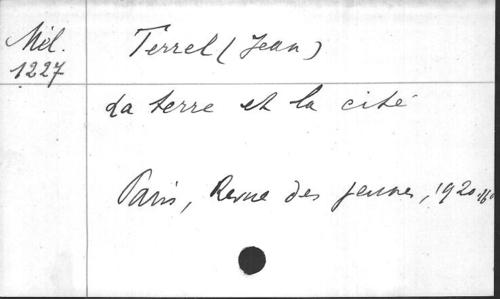 Mél. 1227
Terrel (Jean)
La terre et la cité
Paris, Revue des jeunes, 1920.